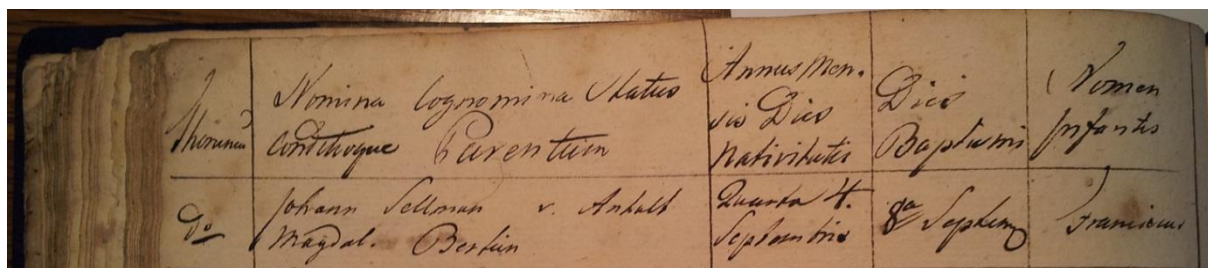 Nomina Cognomina Status
Conditioque Parentum
Annus Men-
sis Dies
Nativitatis
Dies
Baptismi
Nomen
Infantis
do
Johann Sellman v. Anhalt
Magdal. Bertin
Quarta 4.
Septembris
8a Septemb
Franciscus